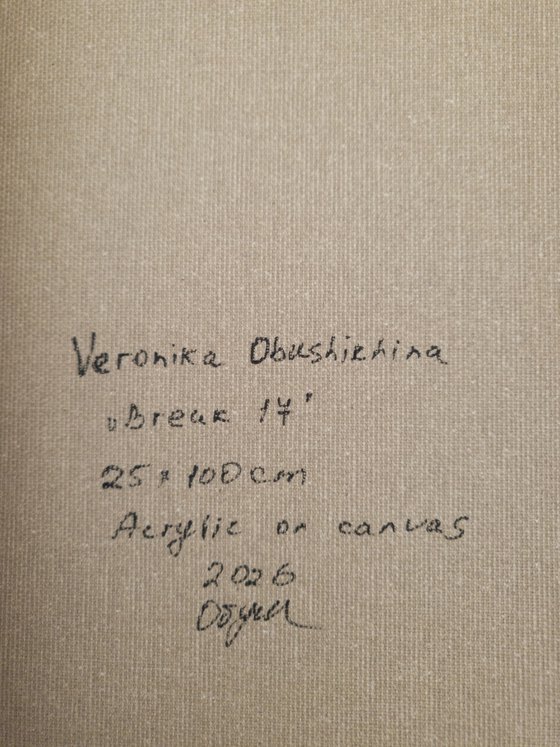 Veronika Obushikhina
„Break 17"
25 × 100 cm
Acrylic on canvas
2026